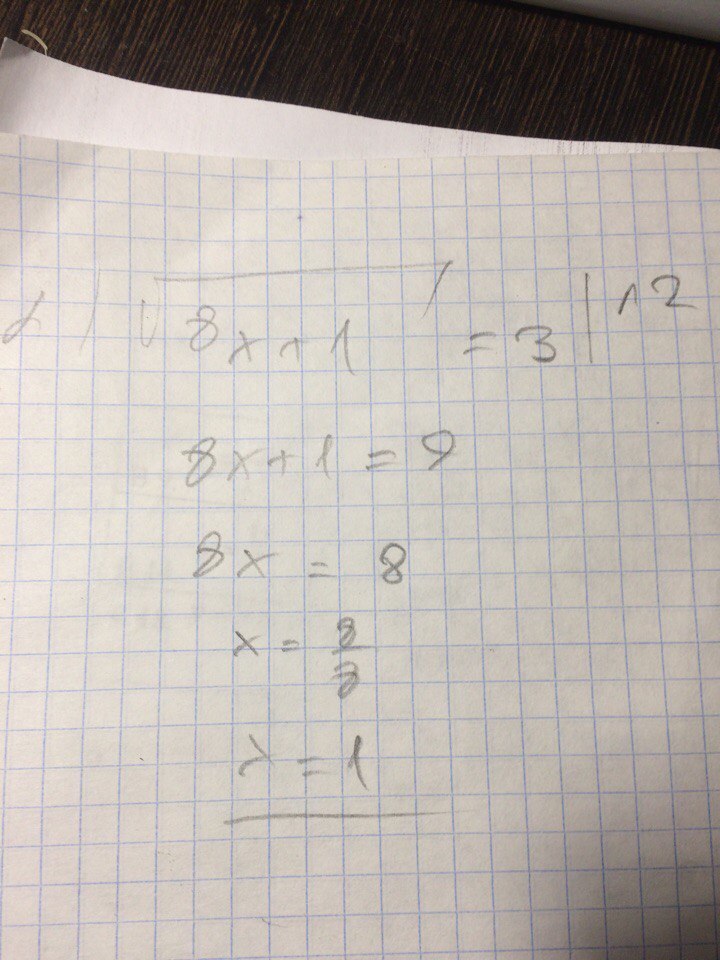 d) √8x+1 = 3 |^2
8x+1 = 9
8x = 8
x = 8/8
x = 1